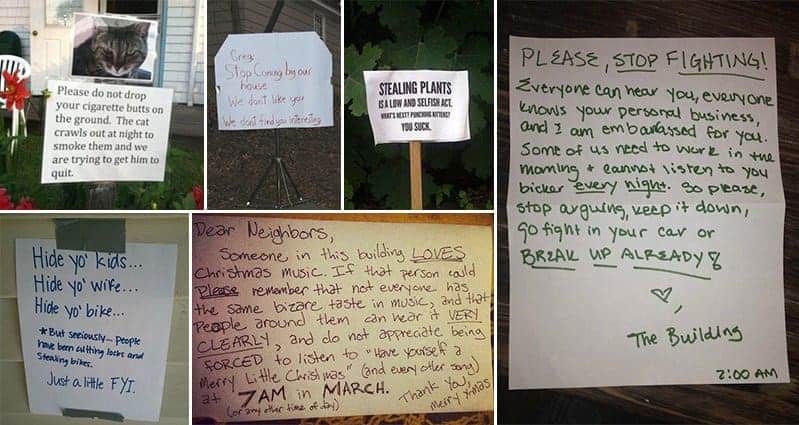 Please do not drop
your cigarette butts on
the ground. The cat
crawls out at night to
smoke them and we
are trying to get him to
quit.
Greg:
Stop Coming by our
house
We don't like you
We don't find you interesting
STEALING PLANTS
IS A LOW AND SELFISH ACT.
WHAT'S NEXT? PUNCHING KITTENS?
YOU SUCK.
Hide yo' kids...
Hide yo' wife...
Hide yo' bike...
*But seriously... people
have been cutting locks and
stealing bikes.
Just a little FYI.
Dear Neighbors,
Someone in this building LOVES
Christmas music. If that person could
Please remember that not everyone has
the same bizare taste in music, and that
People around them can hear it VERY
CLEARLY, and do not appreciate being
FORCED to listen to "Have yourself a
Merry Little Christmas" (and every other song)
at 7AM in MARCH.
(or any other time of day)
Thank you,
merry xmas
PLEASE, STOP FIGHTING!
Everyone can hear you, everyone
knows your personal business,
and I am embarassed for you.
Some of us need to work in the
morning + cannot listen to you
bicker every night. So please,
stop arguing, keep it down,
go fight in your car or
BREAK UP ALREADY!
♡,
The Building
2:00 AM